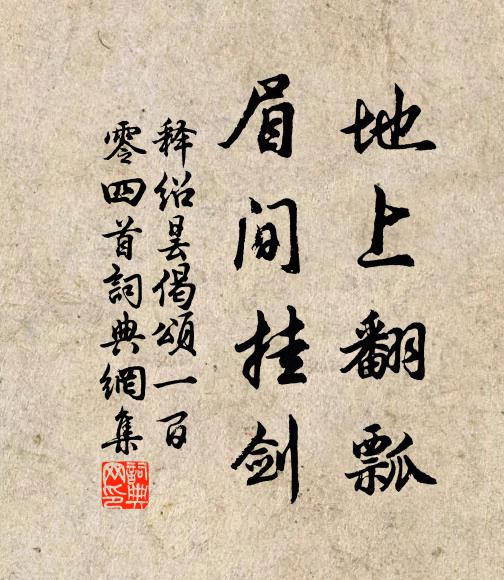 地上翻瓢
眉间挂剑
释绍昙偈颂一百
零四首词典網集
詞典網印